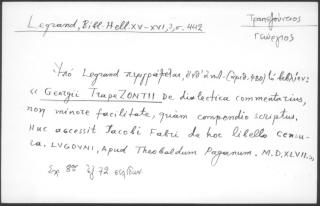 Legrand, Bibl. Hell. XV-XVI, 3, σ. 442
Τραπεζούντιος
Γεώργιος
Ὑπὸ Legrand περιγράφεται,
« Georgii TrapeZONTII De dialectica commentarius,
non minore facilitate, quam compendio scriptus.
Huc accessit Jacobi Fabri de hoc libello censu-
ra. LVGDVNI, Apud Theobaldum Paganum. M.D.XLVII.»
Σχ. 8ον ἐξ 72 σελίδων